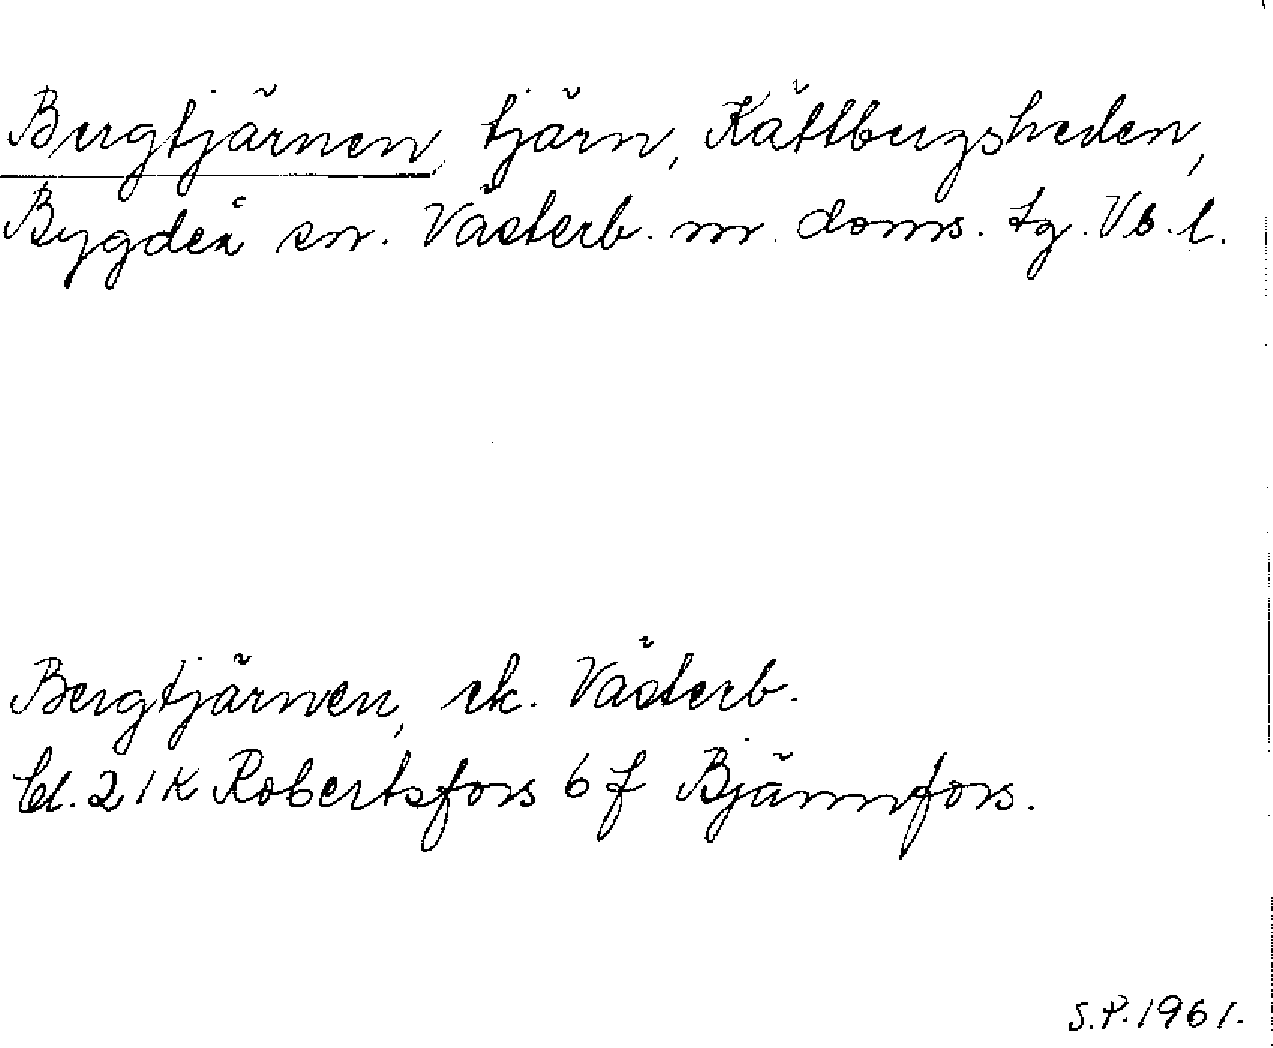 Bergtjärnen, tjärn, Kättbergsheden,
Bygdeå sn. Västerb. m. doms. tg. Vb. l.
Bergtjärnen, ek. Västerb.
bl. 21K Robertsfors 6 f Bjännfors.
S.P. 1961.